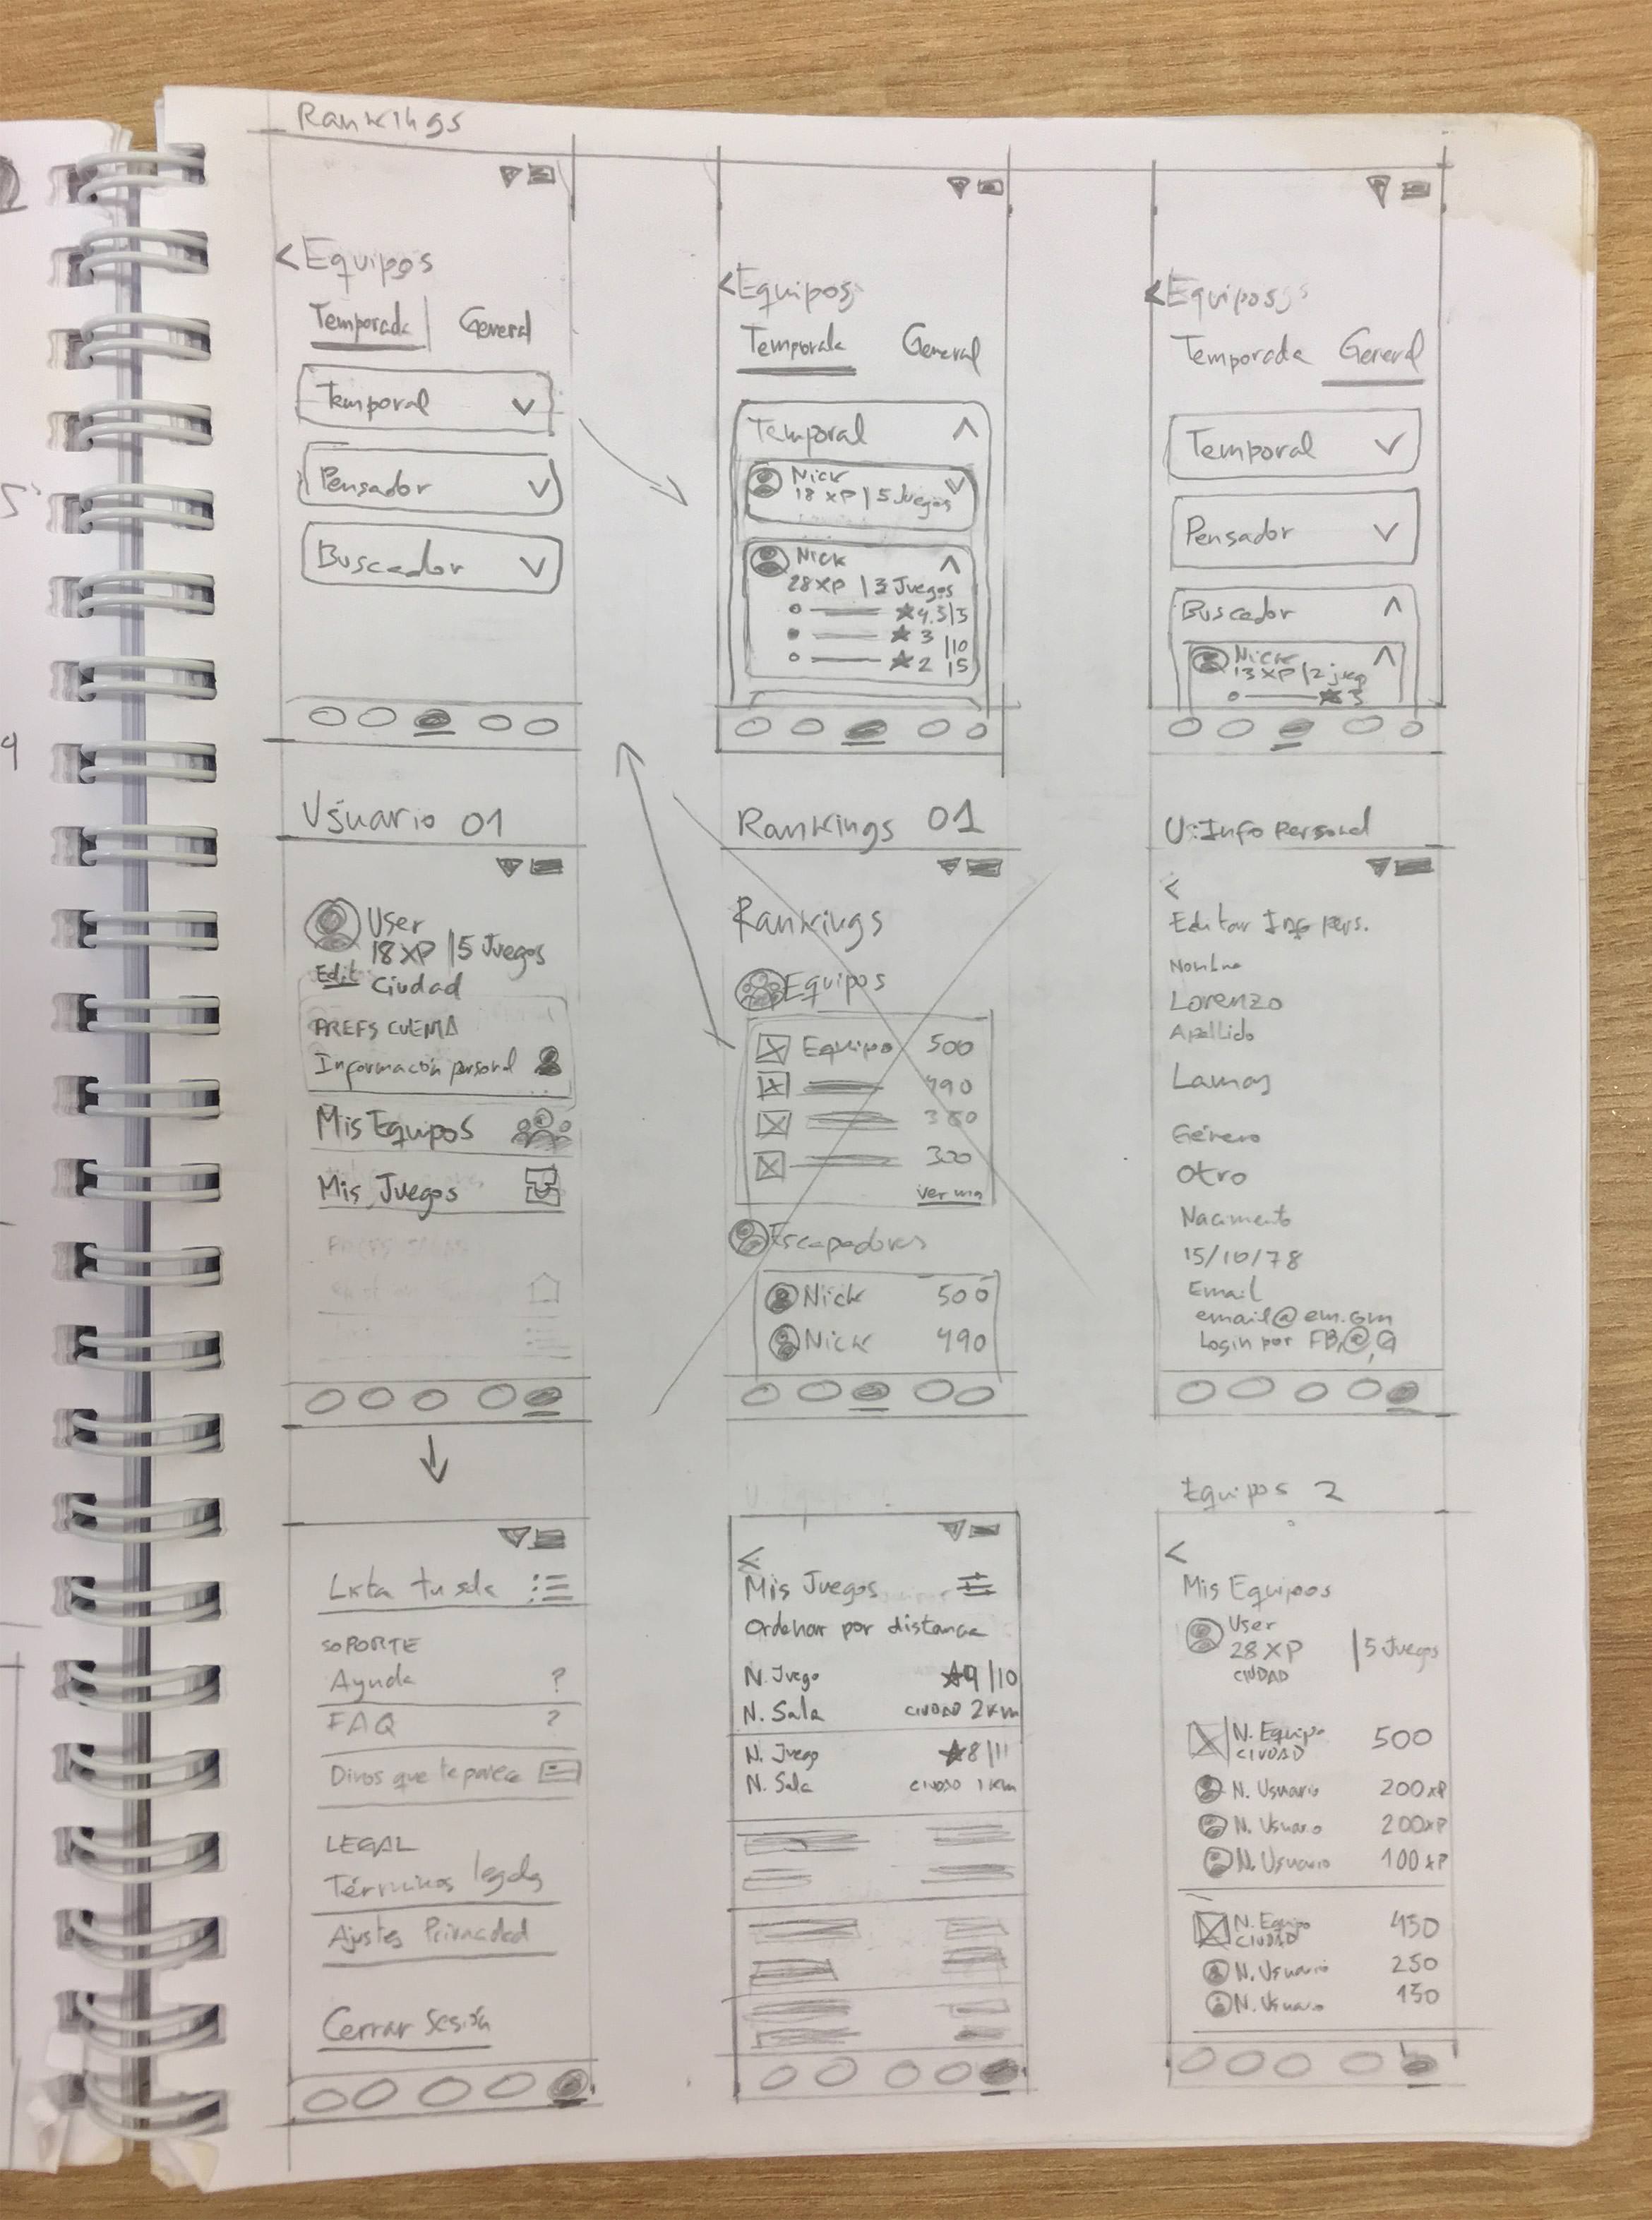 Rankings
< Equipos
Temporada General
Temporal
Pensador
Buscador
< Equipos
Temporada General
Temporal
Nick
18 XP | 5 Juegos
Nick
28 XP | 3 Juegos
★ 4.5/5
★ 3 /10
★ 2 /5
< Equipos
Temporada General
Temporal
Pensador
Buscador
Nick
13 XP | 2 jueg
★ 3
Usuario 01
User
18 XP | 5 Juegos
Edit Ciudad
PREFS CUENTA
Información personal
Mis Equipos
Mis Juegos
Rankings 01
Rankings
Equipos
Equipo 500
490
300
Ver ma
Escapadores
Nick 500
Nick 490
U: Info Personal
<
Editar Inf pers.
Nombre
Lorenzo
Apellido
Lamas
Género
Otro
Nacimento
15/10/78
Email
email@em.com
Login por FB, @, G
Lista tu sala
SOPORTE
Ayuda ?
FAQ ?
Dinos que te parece
LEGAL
Términos legales
Ajustes Privacidad
Cerrar Sesión
<
Mis Juegos
Ordenar por distancia
N. Juego ★9/10
N. Sala CIUDAD 2 Km
N. Juego ★8/11
N. Sala CIUDAD 1 Km
Equipos 2
<
Mis Equipos
User
28 XP | 5 Juegos
CIUDAD
N. Equipo 500
CIUDAD
N. Usuario 200 XP
N. Usuaro 200 XP
N. Usuario 100 XP
N. Equipo 450
CIUDAD
N. Usuario 250
N. Usuaro 150